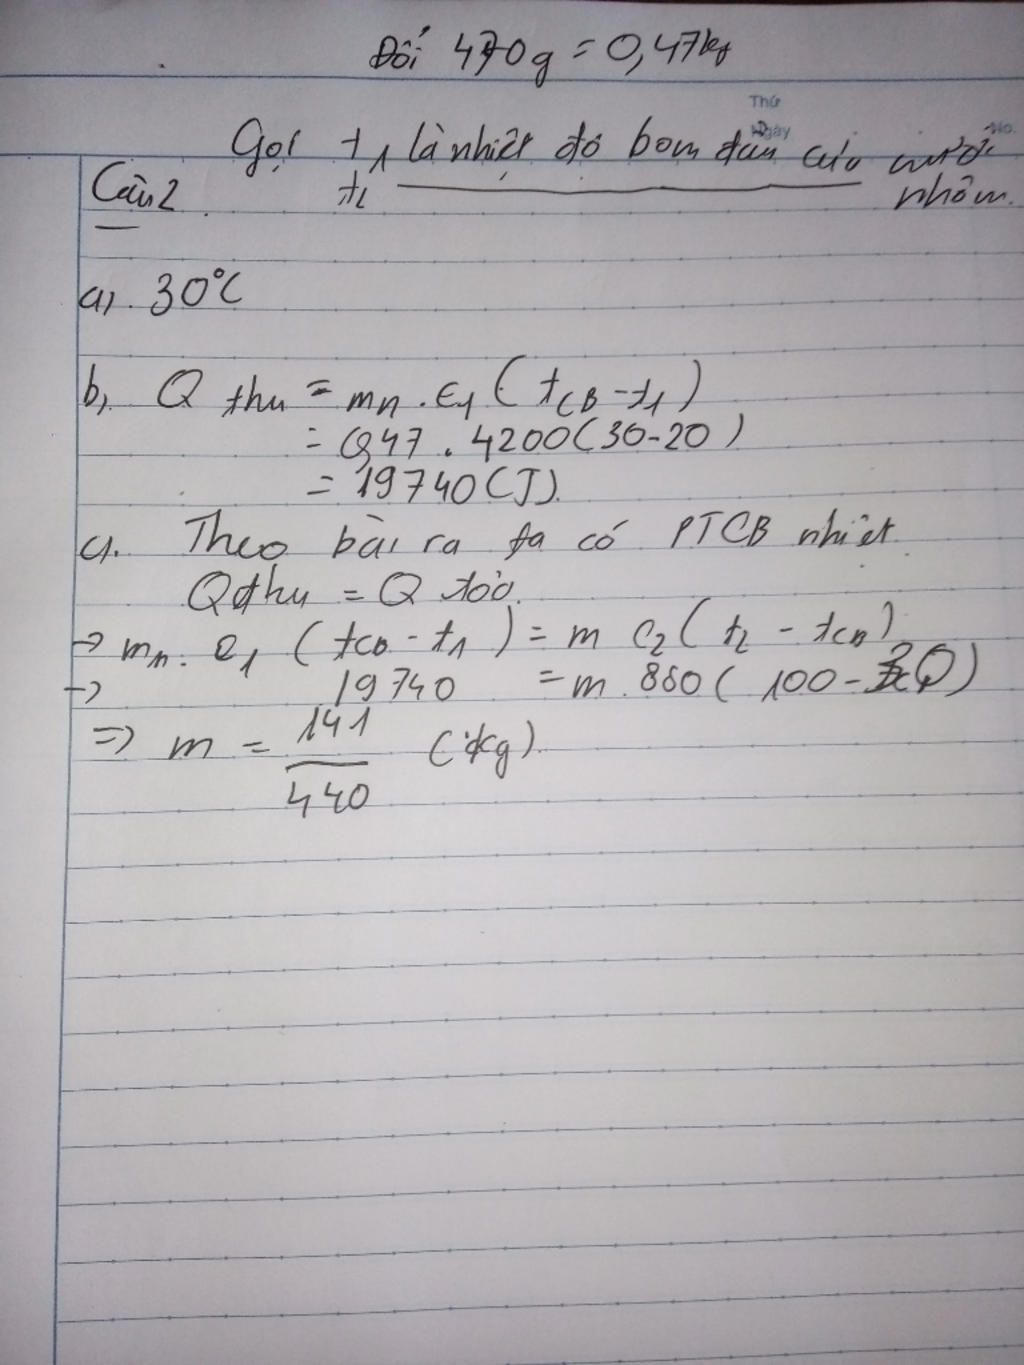 Đổi 470g = 0,47kg
Thứ
Ngày
No.
Gọi t1 là nhiệt độ bom đầu của nước
t2 nhôm.
Câu 2
a, 30°C
b, Q thu = mn . c1 ( tCB - t1 )
= 0,47 . 4200 ( 30 - 20 )
= 19740 (J).
c1. Theo bài ra ta có PTCB nhiệt
Q thu = Q tỏa.
→ mn . c1 ( tCB - t1 ) = m c2 ( t2 - tCB )
→ 19740 = m . 880 ( 100 - 30 )
⇒ m = 141/440 (kg).